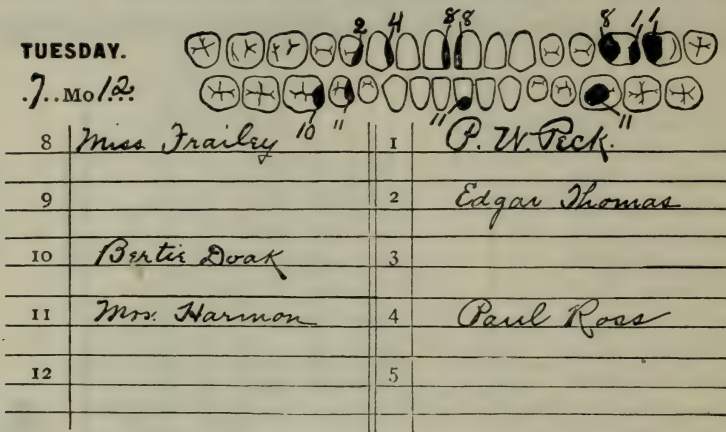 2 4 8 8 8 11 11
TUESDAY.
7 Mo 12
10 11 11 11
8 Miss Frailey 1 P. W. Peck.
9 2 Edgar Thomas
10 Bertie Doak 3
11 Mrs. Harmon 4 Paul Ross
12 5